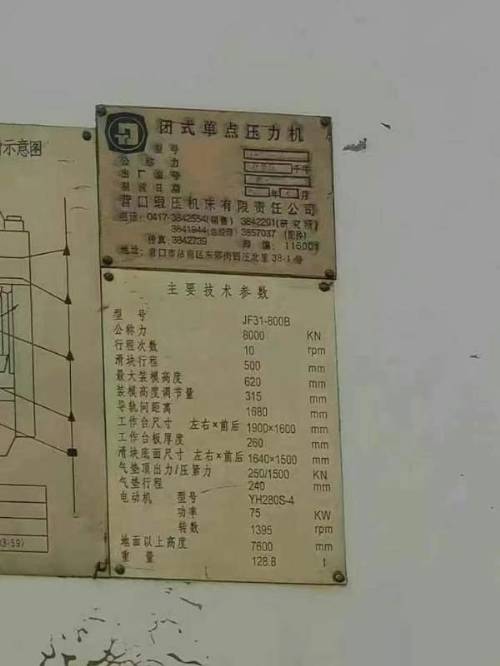 示意图
闭式单点压力机
型号
公称力 千牛
出厂编号
制造日期 年 月
营口锻压机床有限责任公司
电话: 0417-3842554(销售) 3842291(研究所)
3841944 3857037
传真: 3842739 邮编: 115001
38-1号
主要技术参数
型号 JF31-800B
公称力 8000 KN
行程次数 10 rpm
滑块行程 500 mm
最大装模高度 620 mm
装模高度调节量 315 mm
导轨间距离 1680 mm
工作台尺寸 左右×前后 1900×1600 mm
工作台板厚度 260 mm
滑块底面尺寸 左右×前后 1640×1500 mm
气垫顶出力/压紧力 250/1500 KN
气垫行程 240 mm
电动机 型号 YH280S-4
功率 75 KW
转数 1395 rpm
地面以上高度 7600 mm
重量 128.8 t